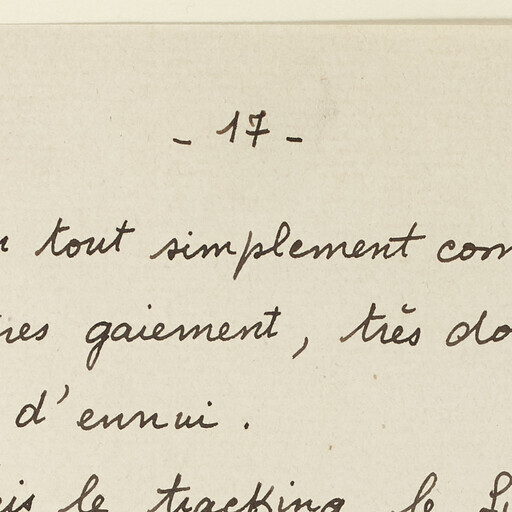 - 17 -
tout simplement com
res gaiement, très do
d'ennui.
is le tracking, le